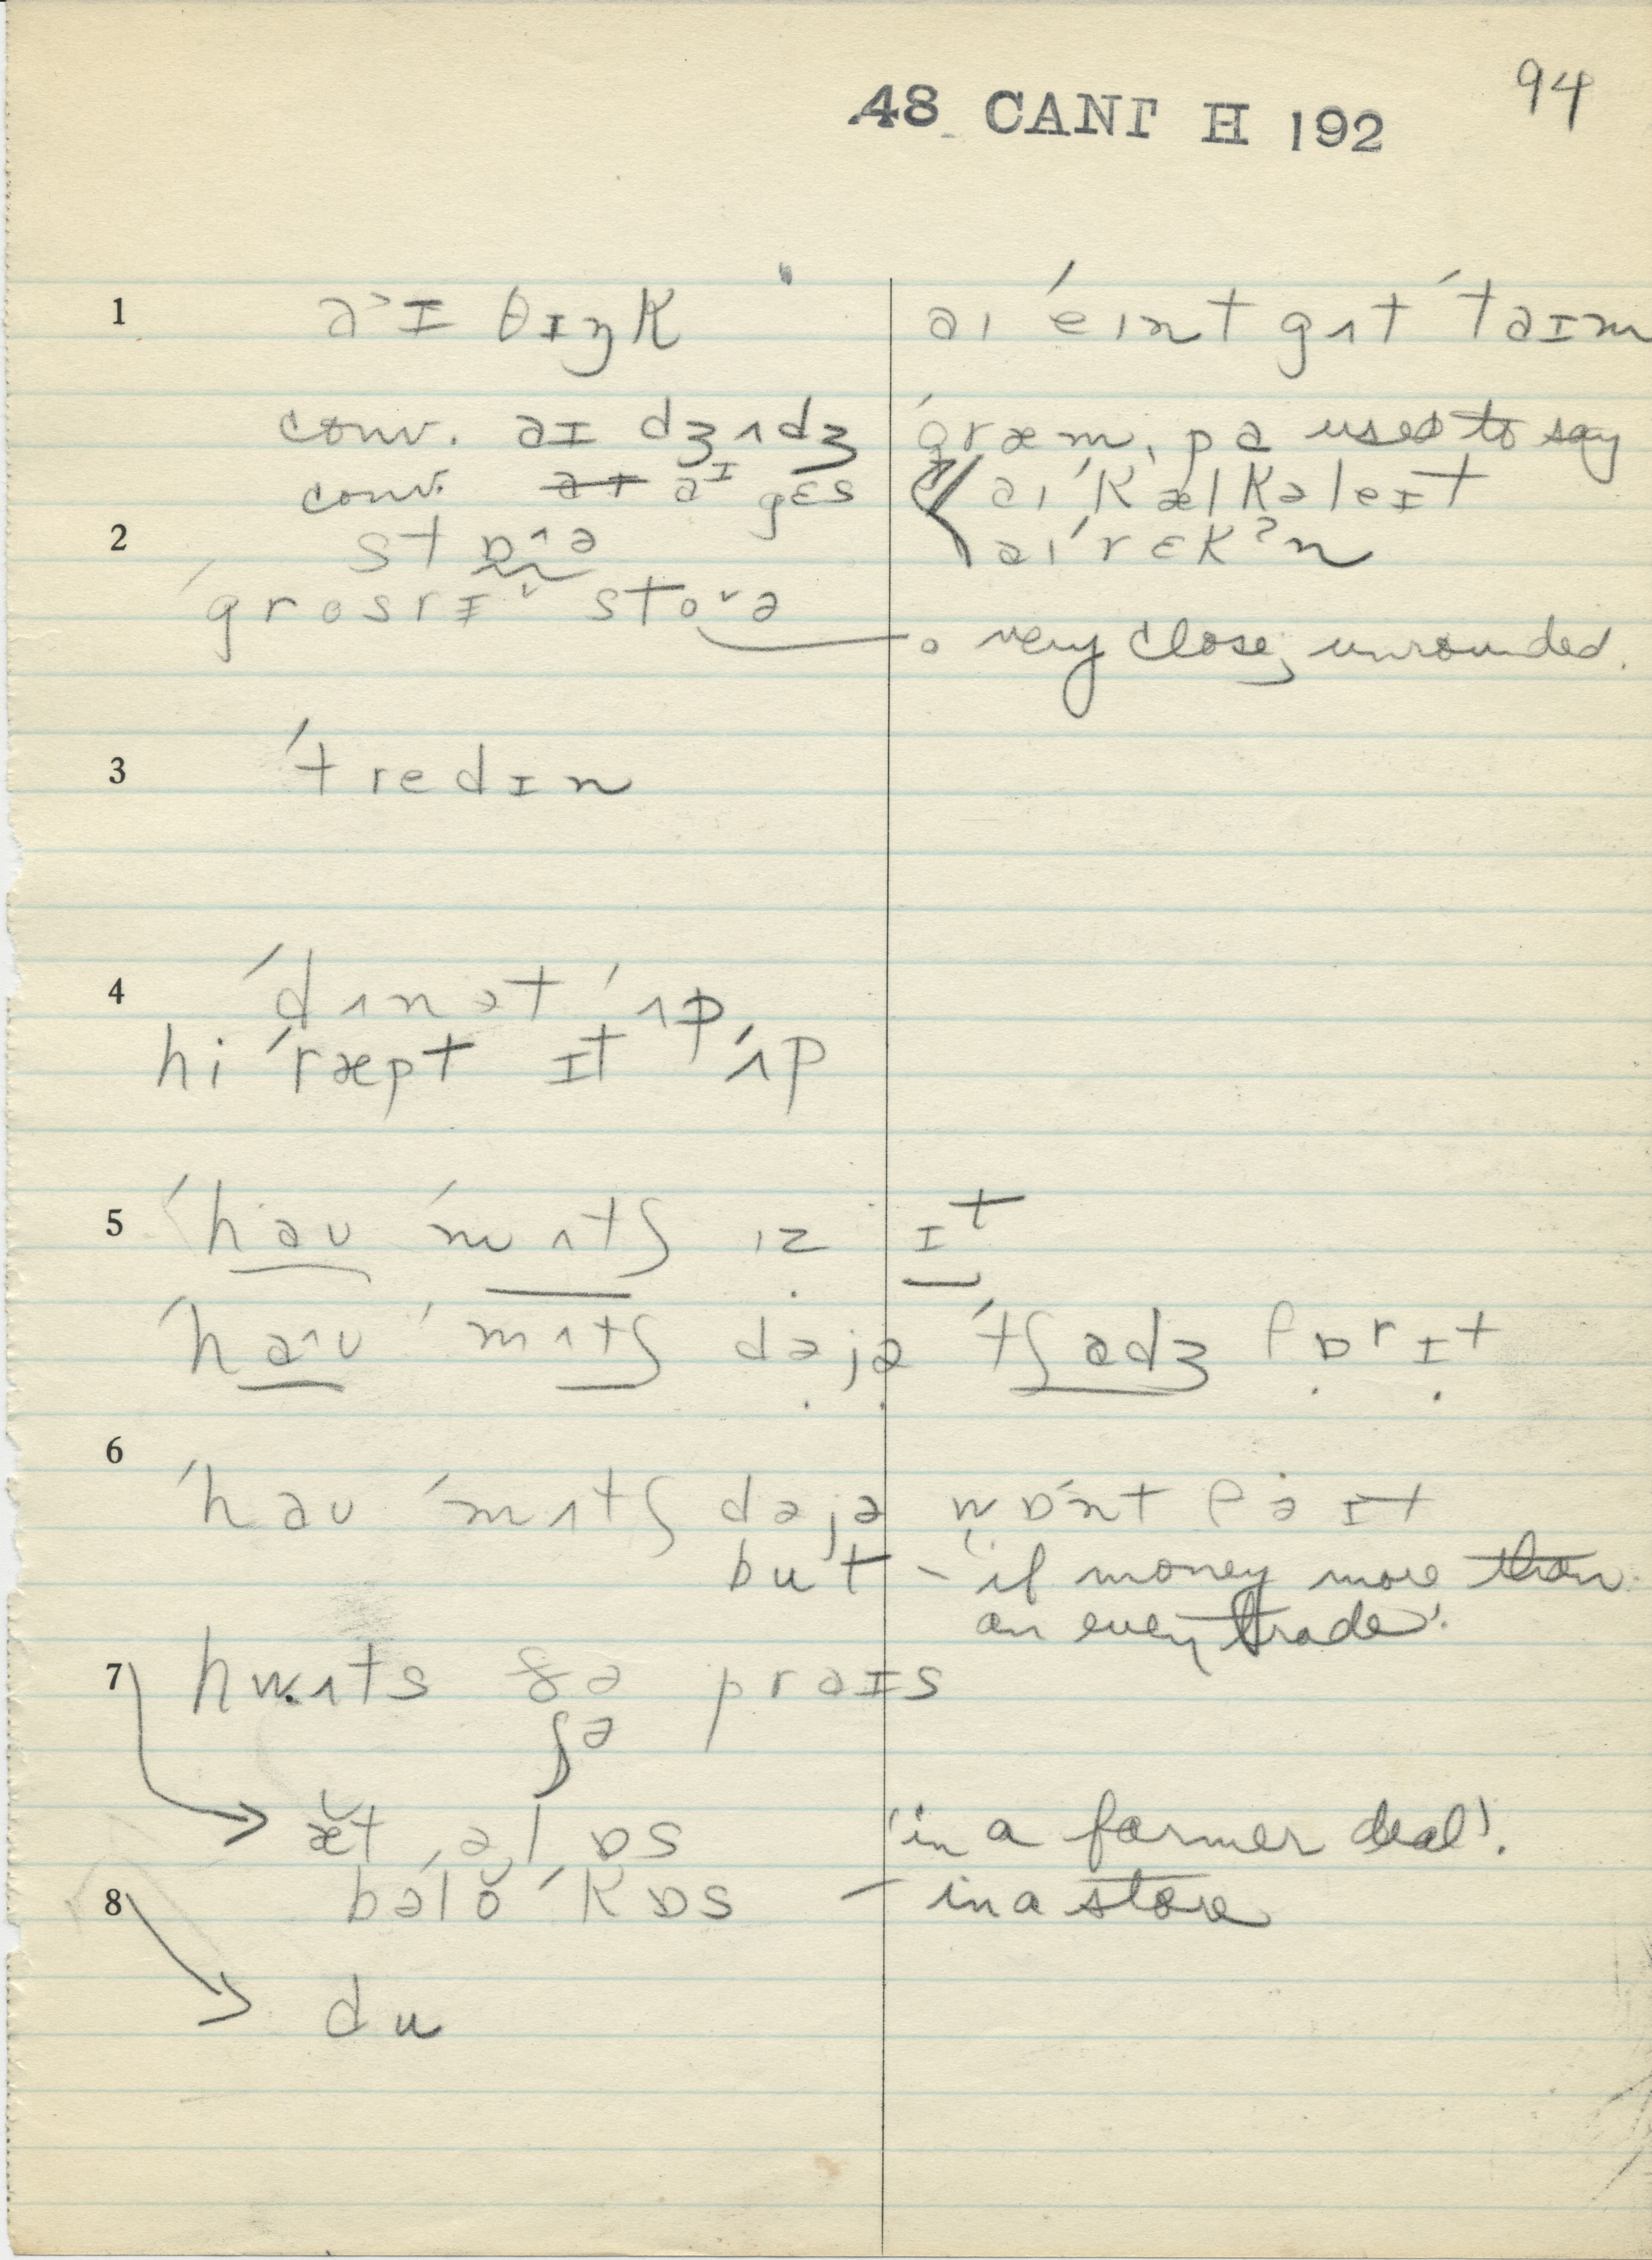 94
48 CANT H 192
1 a˃ɪ θɪŋk aɪ ˈeɪnt gʌt ˈtaɪm
conv. aɪ dʒʌdʒ ˈgræmˌpa used to say
conv. aᴵ gɛs aɪ ˈkælkəleɪt
2 stɒ^ə aɪ ˈrɛkʔn
ˈgrosrɪ˅ sto˅ə
o very close, unrounded.
3 ˈtredɪn
4 ˈdʌnət ˈʌp
hi ˈræpt ɪt ˈʌp
5 ˈhaʊ ˈmʌtʃ ɪz ɪt
ˈha^ʊ ˈmʌtʃ dəjə ˈtʃadʒ fɒr ɪt
6 ˈhaʊ ˈmʌtʃ dəjə wɒnt fə ɪt
but – 'if money more than
an even trade'.
7 hwʌts ðə praɪs
ʃə
æ̆t ˌə l ɒs 'in a farmer deal'.
bəlŏ ˈkɒs – in a store
8
du